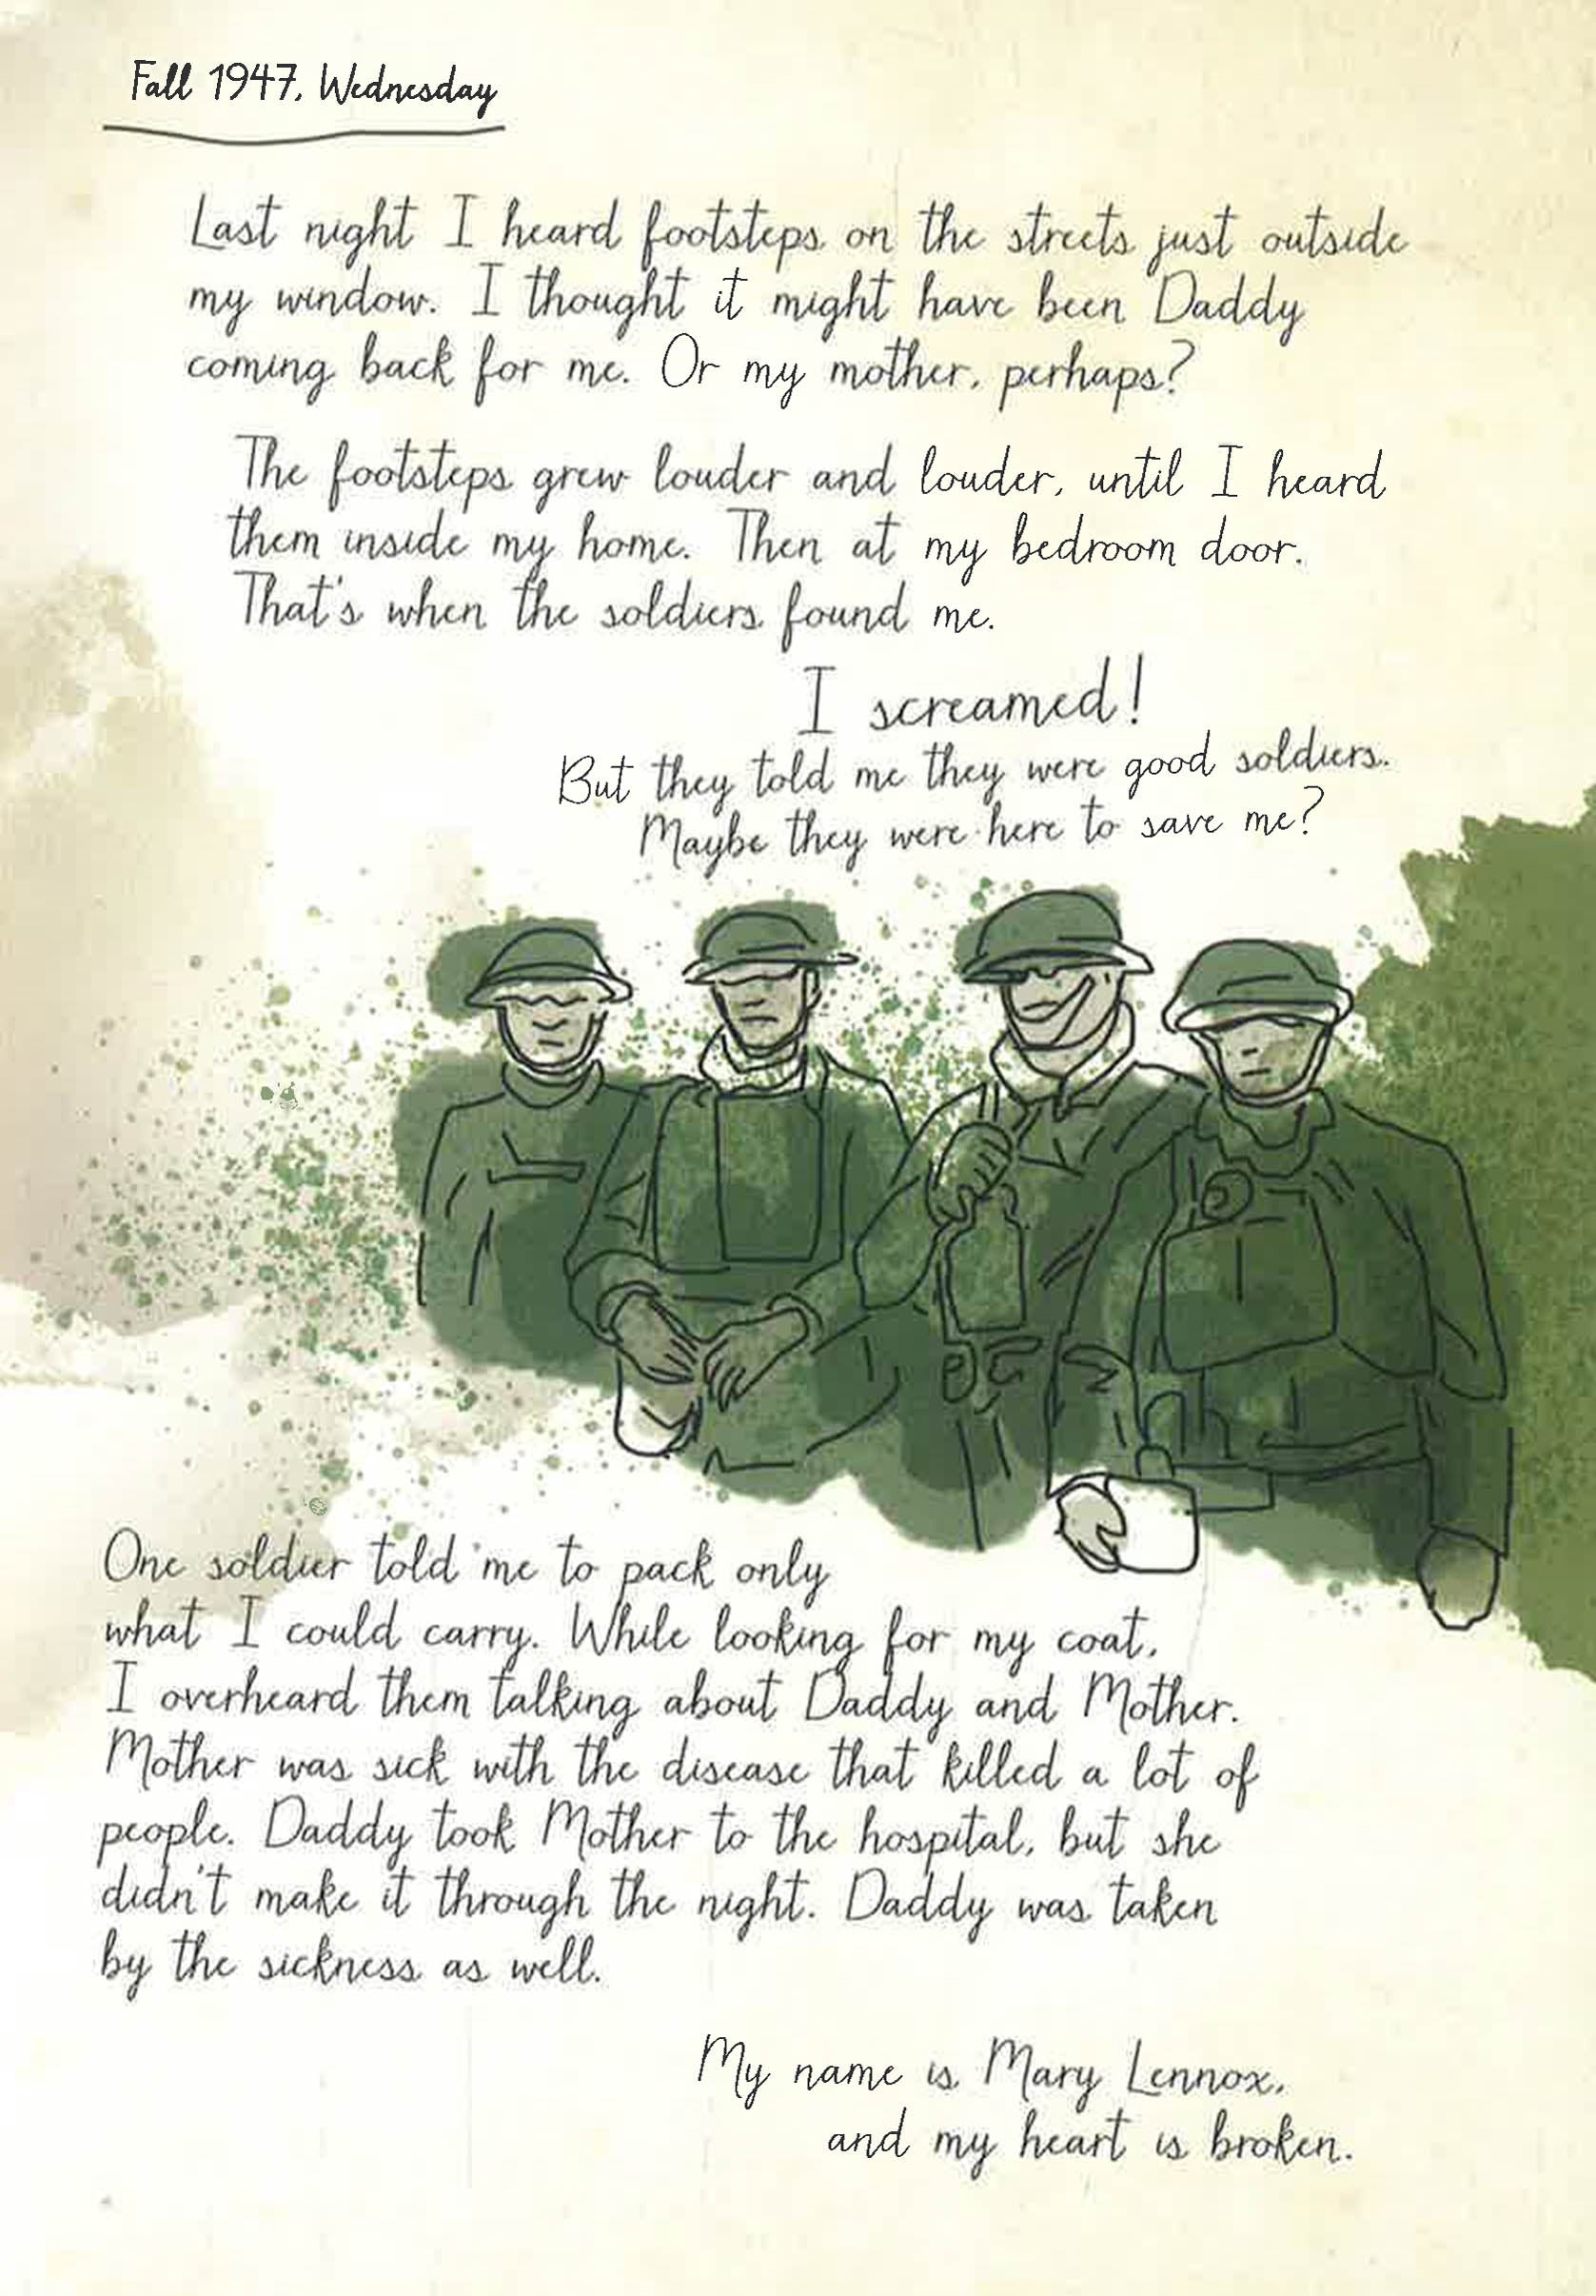 Fall 1947, Wednesday
Last night I heard footsteps on the streets just outside
my window. I thought it might have been Daddy
coming back for me. Or my mother, perhaps?
The footsteps grew louder and louder, until I heard
them inside my home. Then at my bedroom door.
That's when the soldiers found me.
I screamed!
But they told me they were good soldiers.
Maybe they were here to save me?
One soldier told me to pack only
what I could carry. While looking for my coat,
I overheard them talking about Daddy and Mother.
Mother was sick with the disease that killed a lot of
people. Daddy took Mother to the hospital, but she
didn't make it through the night. Daddy was taken
by the sickness as well.
My name is Mary Lennox,
and my heart is broken.